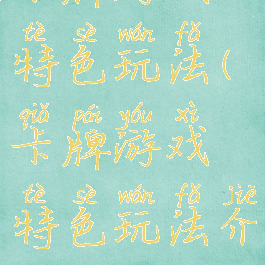 tè sè wán fǎ
特色玩法(
qiǎ pái yóu xì
卡牌游戏
tè sè wán fǎ jiè
特色玩法介